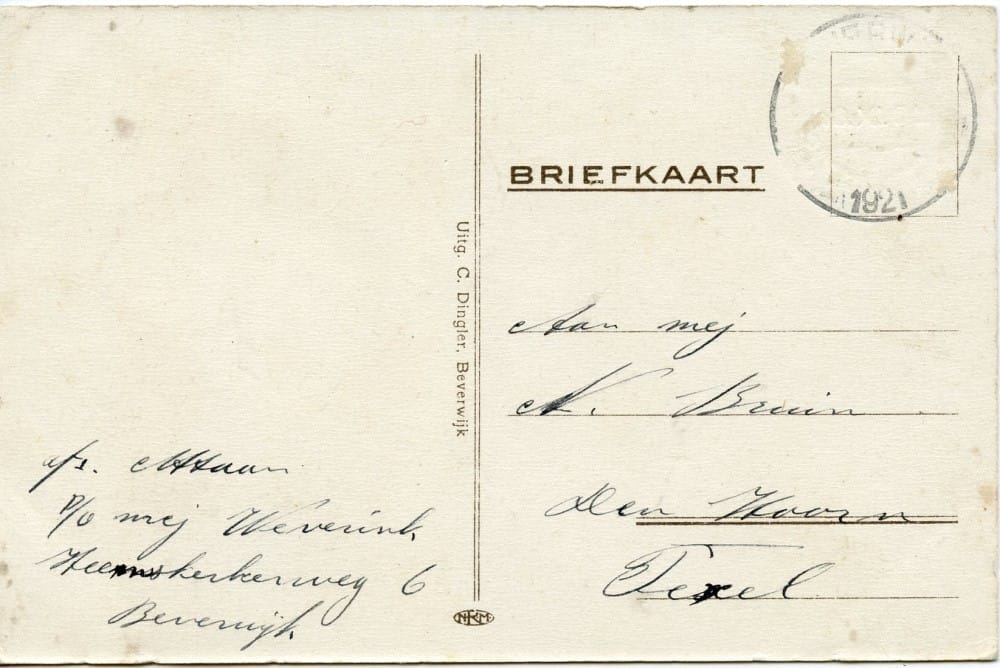 BRIEFKAART
1921
Uitg. C. Dingler, Beverwijk
Aan mej
N. Bruin
Den Hoorn
Texel
afs. Maan
p/o mej Weverink
Heemskerkerweg 6
Beverwijk
NRM